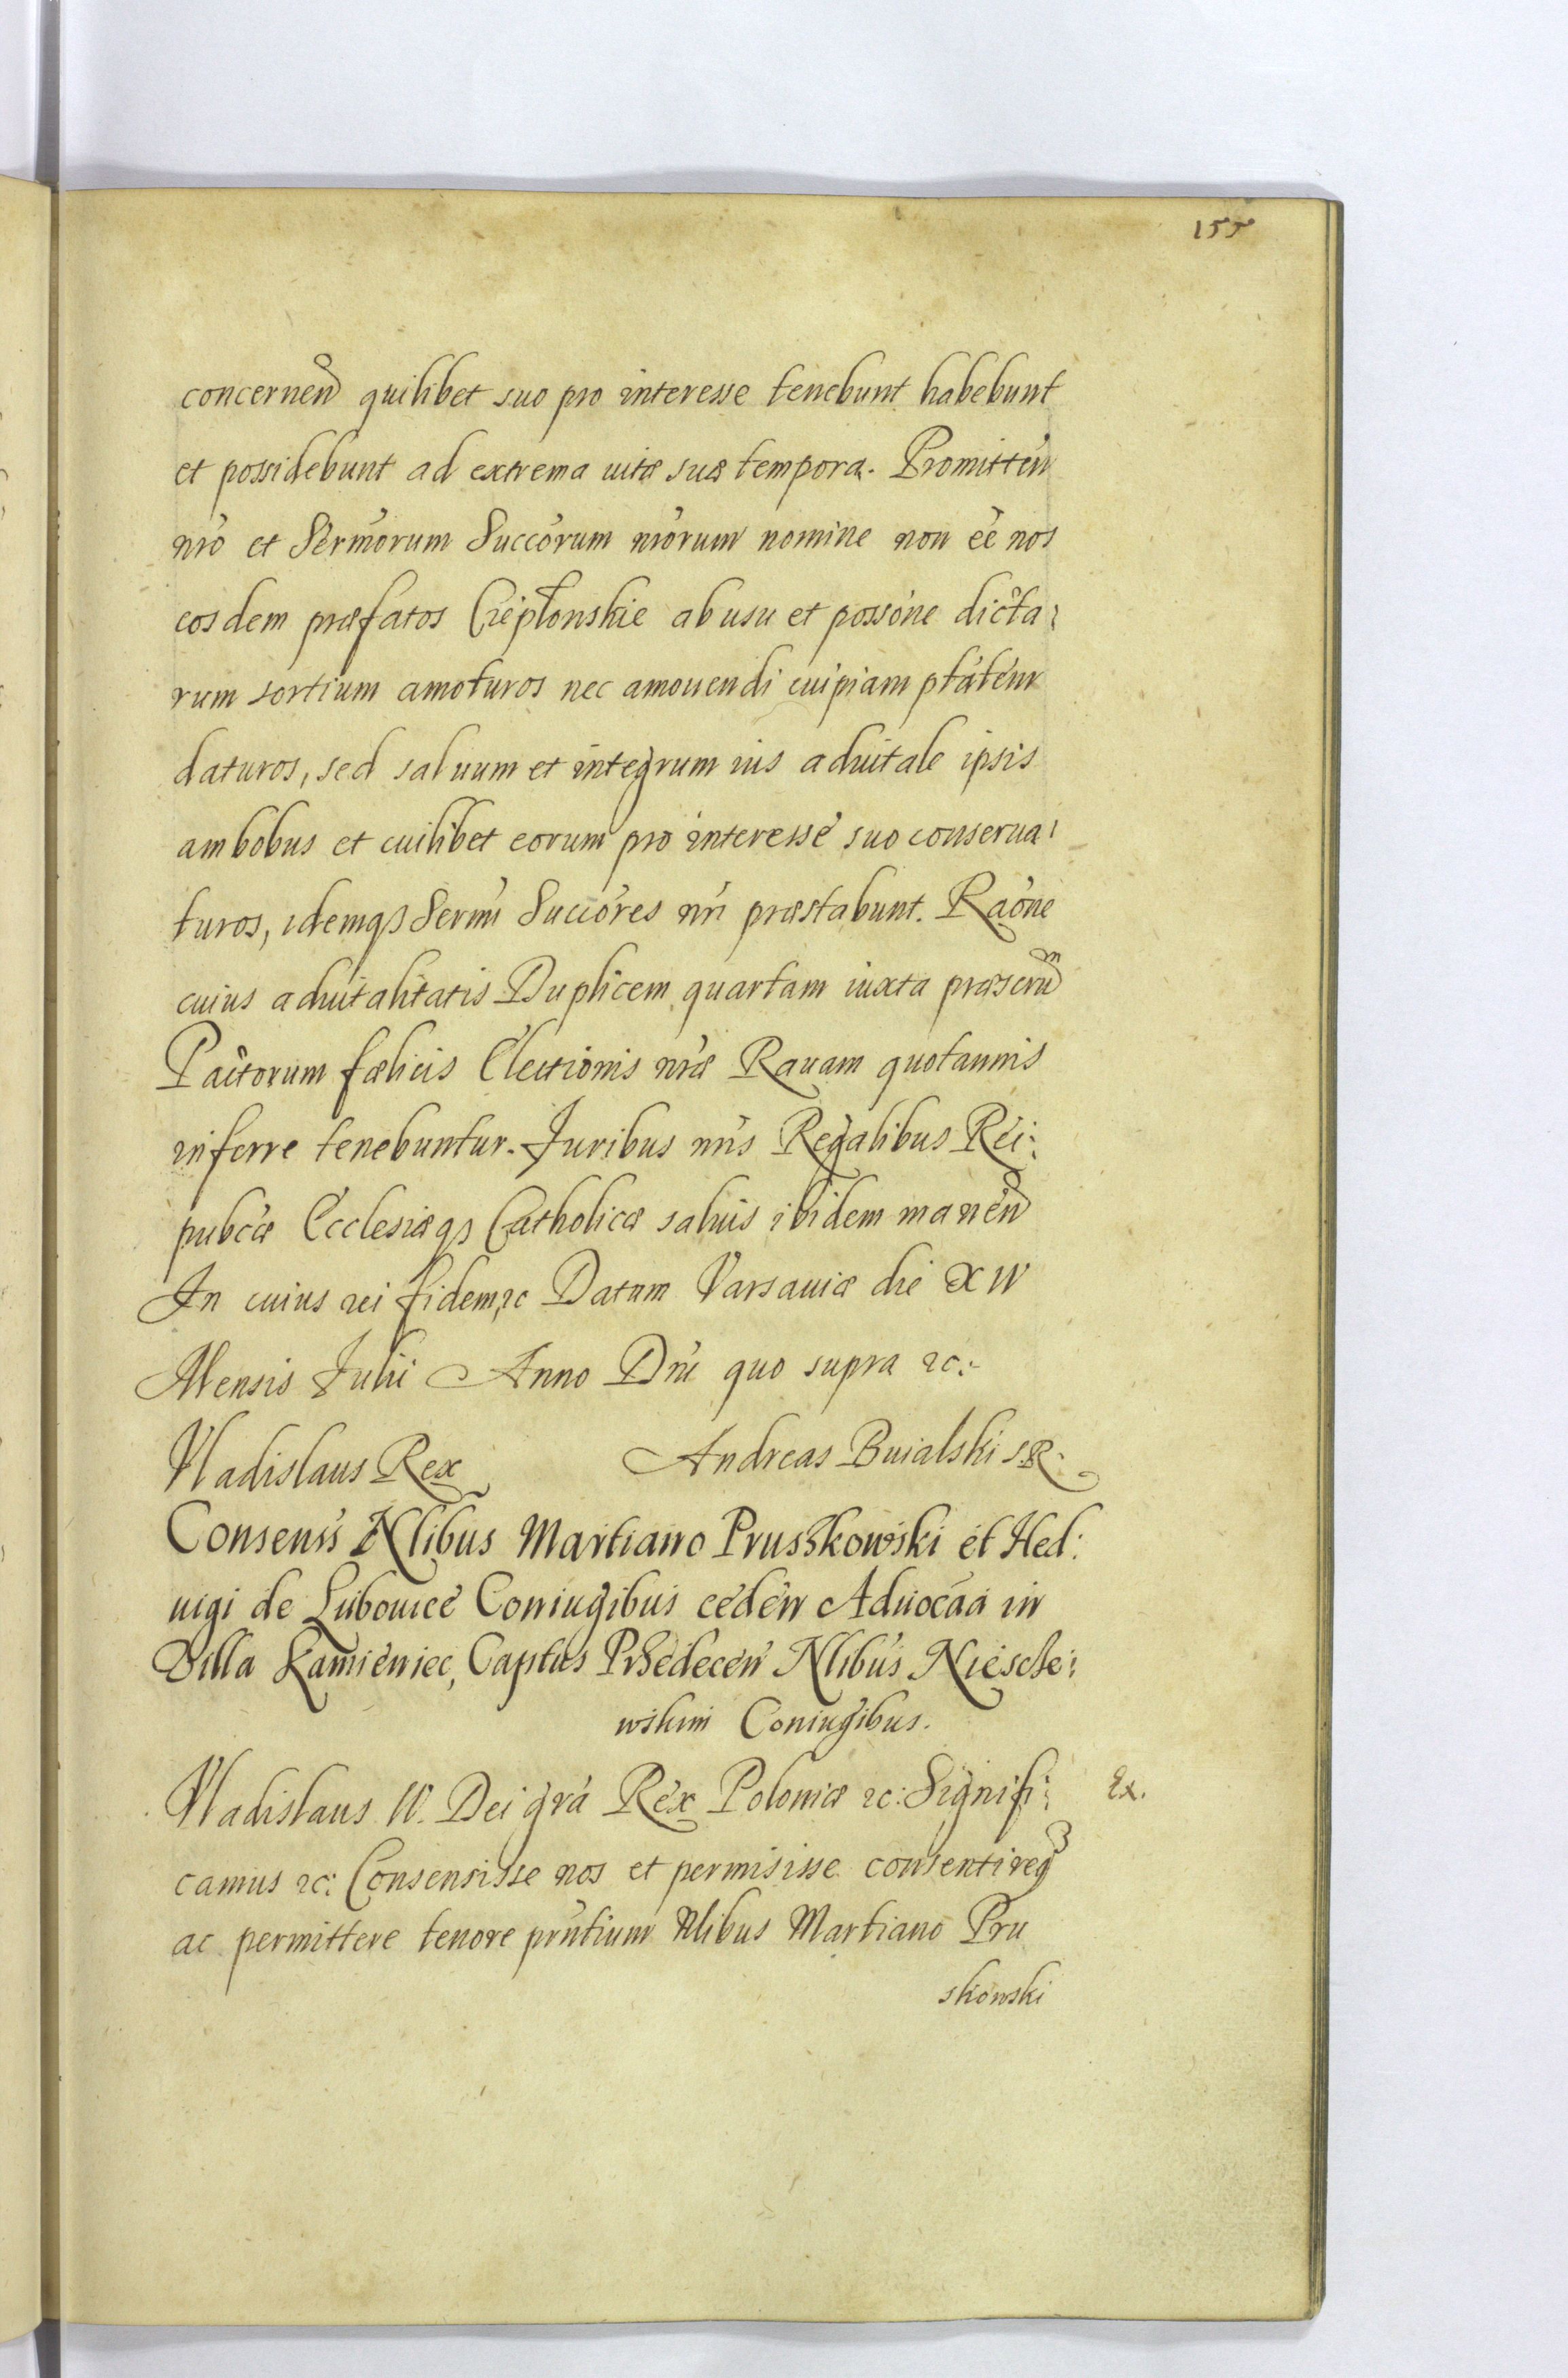 155
concernen̄ quilibet suo pro interesse tenebunt habebunt
et possidebunt ad extrema uitæ suæ tempora. Promitten̄
nr̄o et Serm̄orum Succōrum nr̄orum nomine non eē nos
eosdem præfatos Cieplonskie ab usu et possōne dicta:
rum sortium amoturos nec amouendi cuipiam ptātem
daturos, sed saluum et integrum ius aduitale ipsis
ambobus et cuilibet eorum pro interesse suo conserua:
turos, idemqȝ Serm̄i Succōres nr̄i præstabunt. Raōne
cuius aduitalitatis Duplicem quartam iuxta præscrū̄m
Pactorum fælicis Electionis nr̄æ Rauam quotannis
inferre tenebuntur. Juribus nr̄is Regalibus Rei:
pubcæ Ecclesiæqȝ Catholicæ saluis ibidem manen̄
In cuius rei fidem, ꝛc Datum Varsauiæ die XIV
Mensis Julii Anno Dn̄i quo supra ꝛc:
Vladislaus Rex Andreas Buialski SR.
Consen̄s Nlibus Martiano Prusskowski et Hed:
uigi de Lubouice Coniugibus ceden̄ Aduocāa in
Villa Kamieniec, Captus Prsedecen̄ Nlibus Niesche:
wskim Coniugibus.
Vladislaus IV. Dei grā Rex Poloniæ ꝛc: Signifi:
Ex.
camus ꝛc: Consensisse nos et permisisse consentireqȝ
ac permittere tenore prn̄tium Nlibus Martiano Pru
skowski